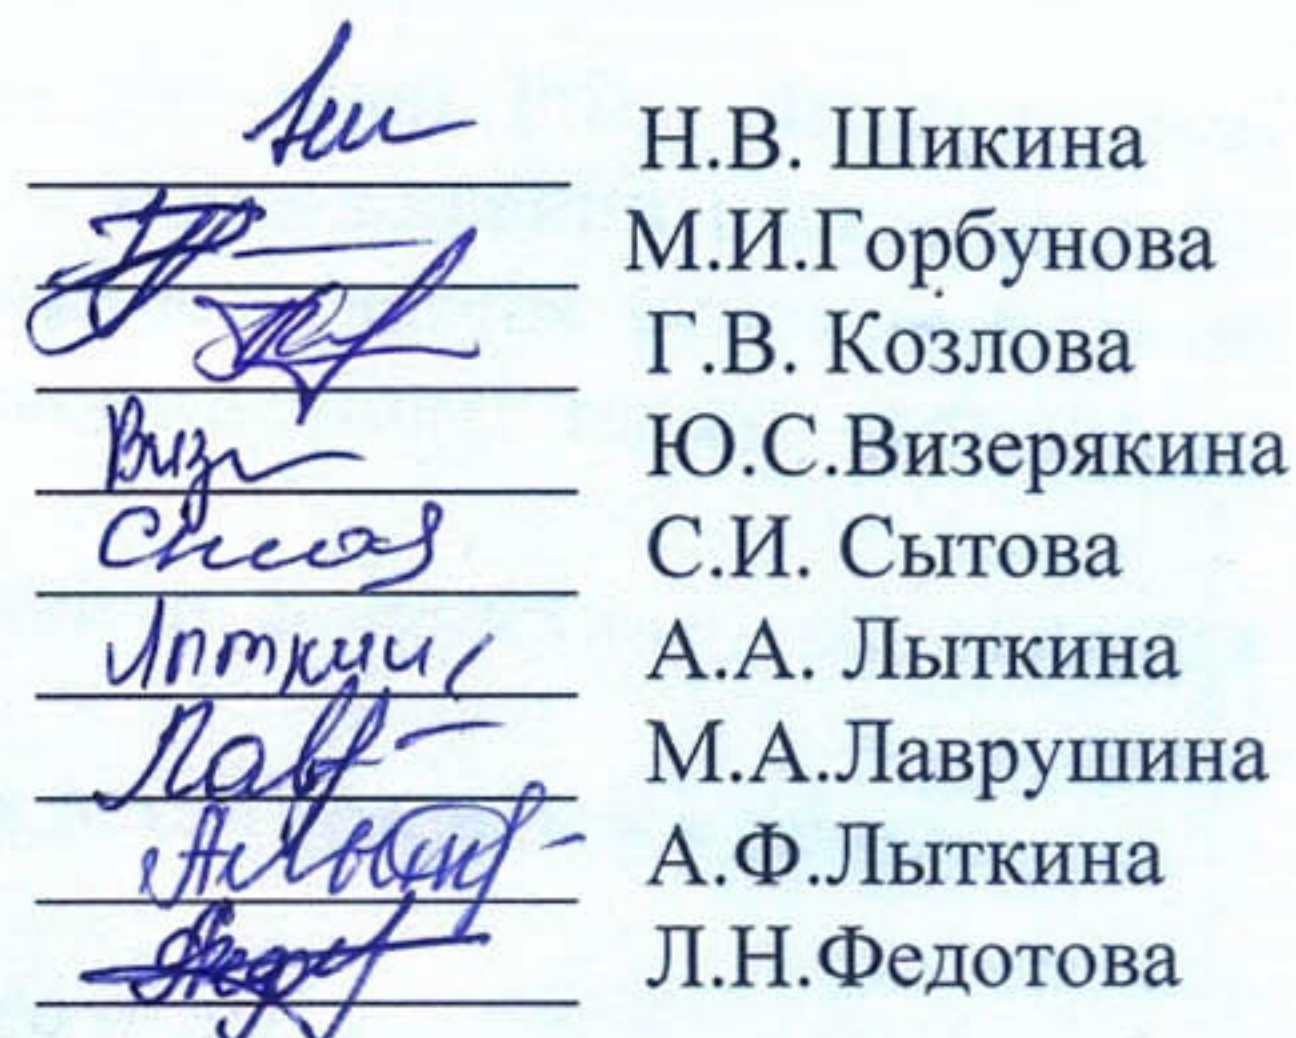 Н.В. Шикина
М.И.Горбунова
Г.В. Козлова
Визе Ю.С.Визерякина
С.И. Сытова
А.А. Лыткина
Лавр М.А.Лаврушина
А.Ф.Лыткина
Л.Н.Федотова